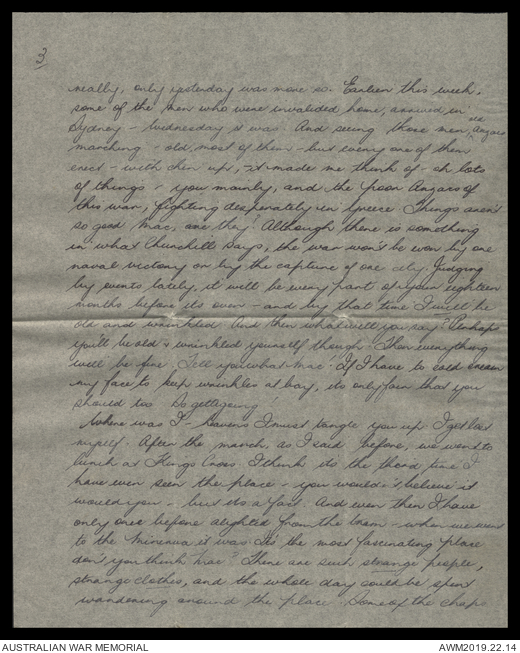 3.
really, only yesterday was more so. Earlier this week,
some of the men who were invalided home, arrived in
Sydney - Wednesday it was. And seeing those men, old Anzacs
marching - old, most of them - but every one of them
erect - with chin up, it made me think of - oh lots
of things - you mainly, and the poor Anzacs of
this war, fighting desperately in Greece. Things aren't
so good Mac, are they? Although there is something
in what Churchill says, the war won't be won by one
naval victory or by the capture of one city. Judging
by events lately, it will be every part of your eighteen
months before its over - and by that time I will be
old and wrinkled. And then what will you say? Perhaps
you'll be old & wrinkled yourself though. Then everything
will be fine. Tell you what Mac. If I have to cold cream
my face to keep wrinkles at bay, its only fair that you
should too. So get going!
Where was I - heavens I must tangle you up. I get lost
myself. After the march, as I said before, we went to
lunch at Kings Cross. I think its the third time I
have ever seen the place - you wouldn't believe it
would you - but its a fact. And even then I have
only once before alighted from the tram - when we went
to the Minerva it was. Its the most fascinating place
don't you think Mac? There are such strange people,
strange clothes, and the whole day could be spent
wandering around the place. Some of the chaps
AUSTRALIAN WAR MEMORIAL
AWM2019.22.14